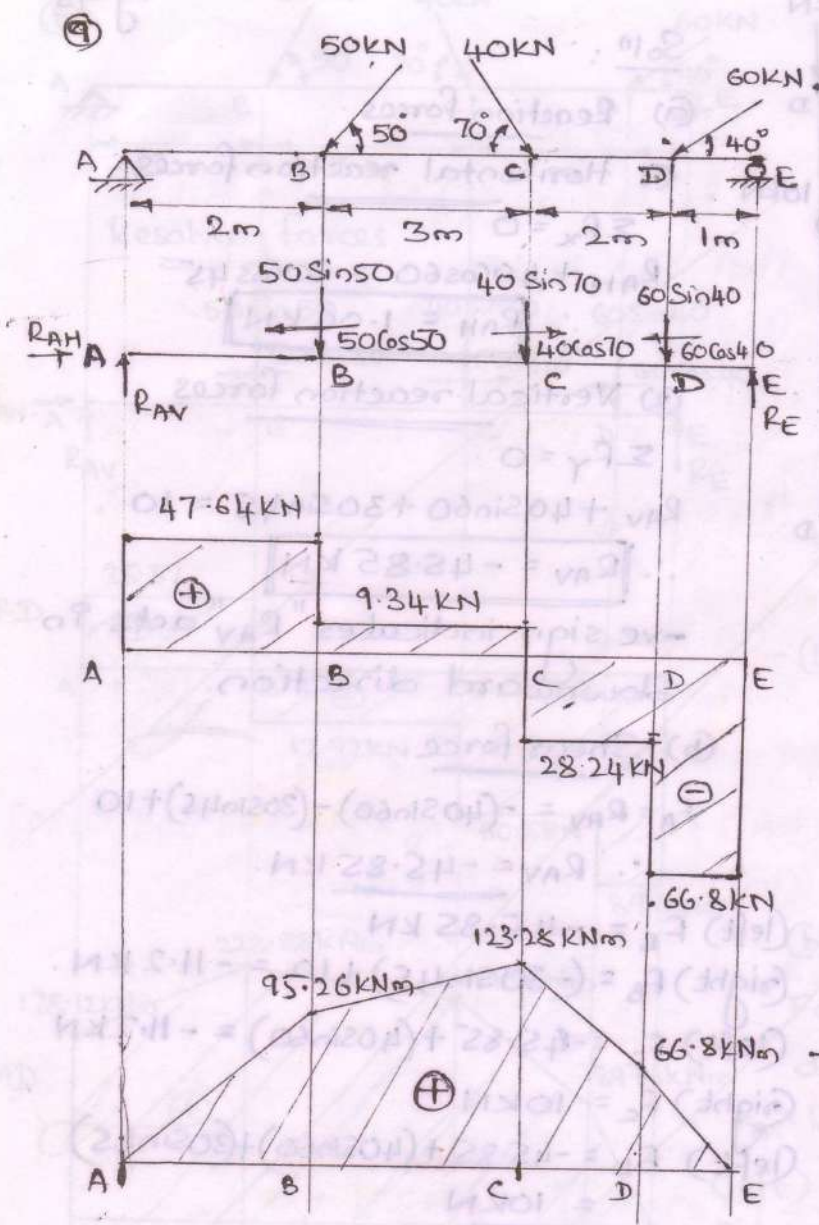 9
50KN 40KN
60KN
50° 70° 40°
A B C D E
2m 3m 2m 1m
50Sin50 40Sin70 60Sin40
RAH A 50Cos50 40Cos70 60Cos40
B C D E
RAV RE
47.64KN
+ 9.34KN
A B C D E
28.24KN
-
66.8KN
123.28KNm
95.26KNm
66.8KNm
+
A B C D E